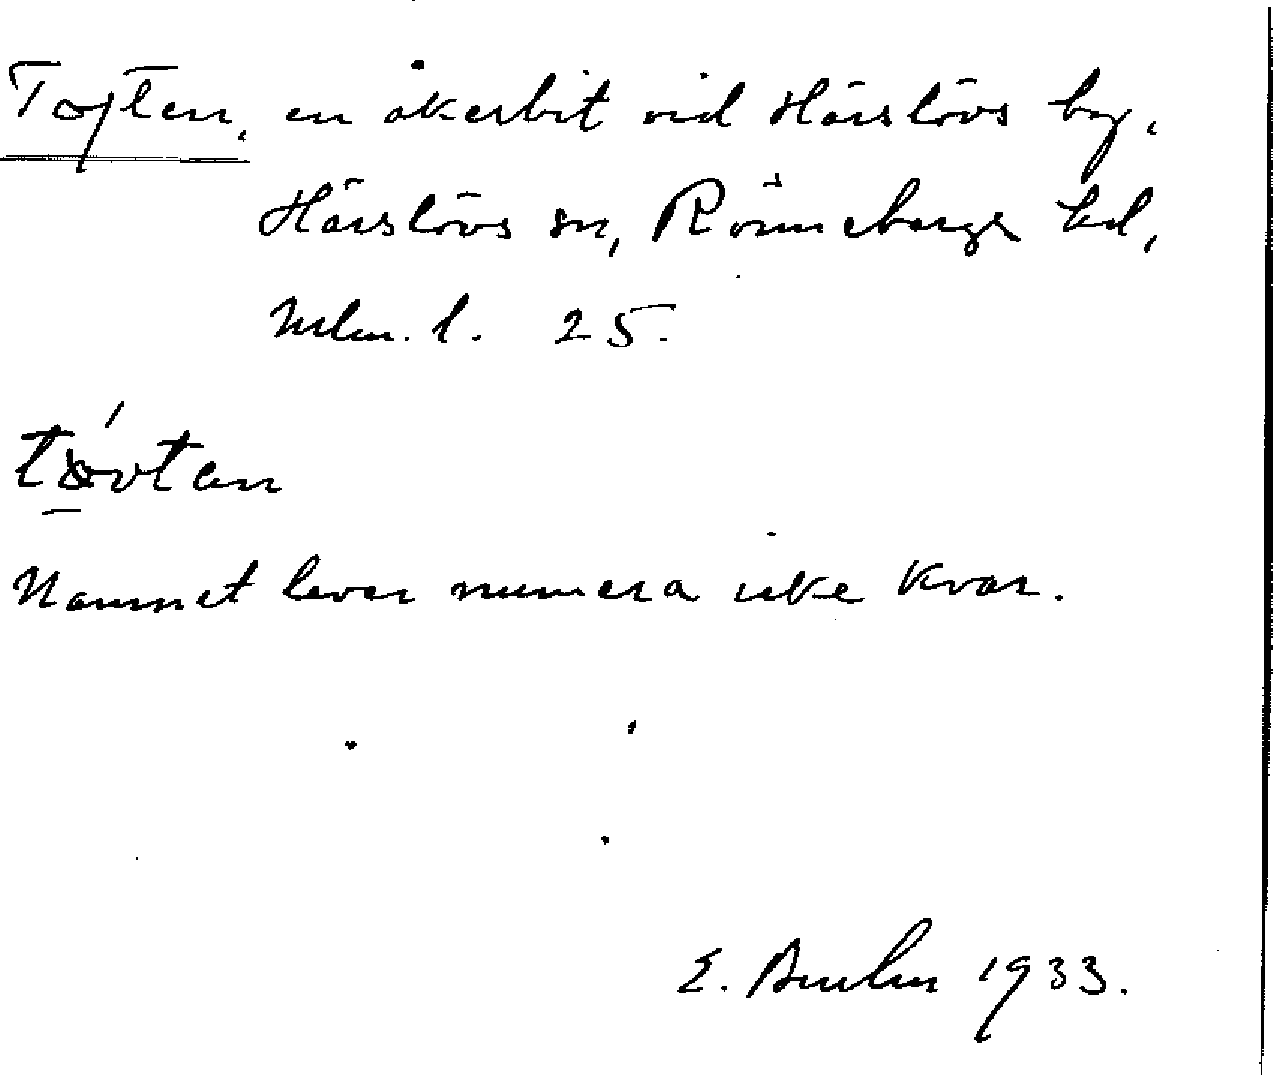 Toften, en åkerbit vid Härslövs by,
Härslövs sn, Rönnebergs hd,
Mlm. l. 25.
tovtan
Namnet lever numera icke kvar.
E. 1933.